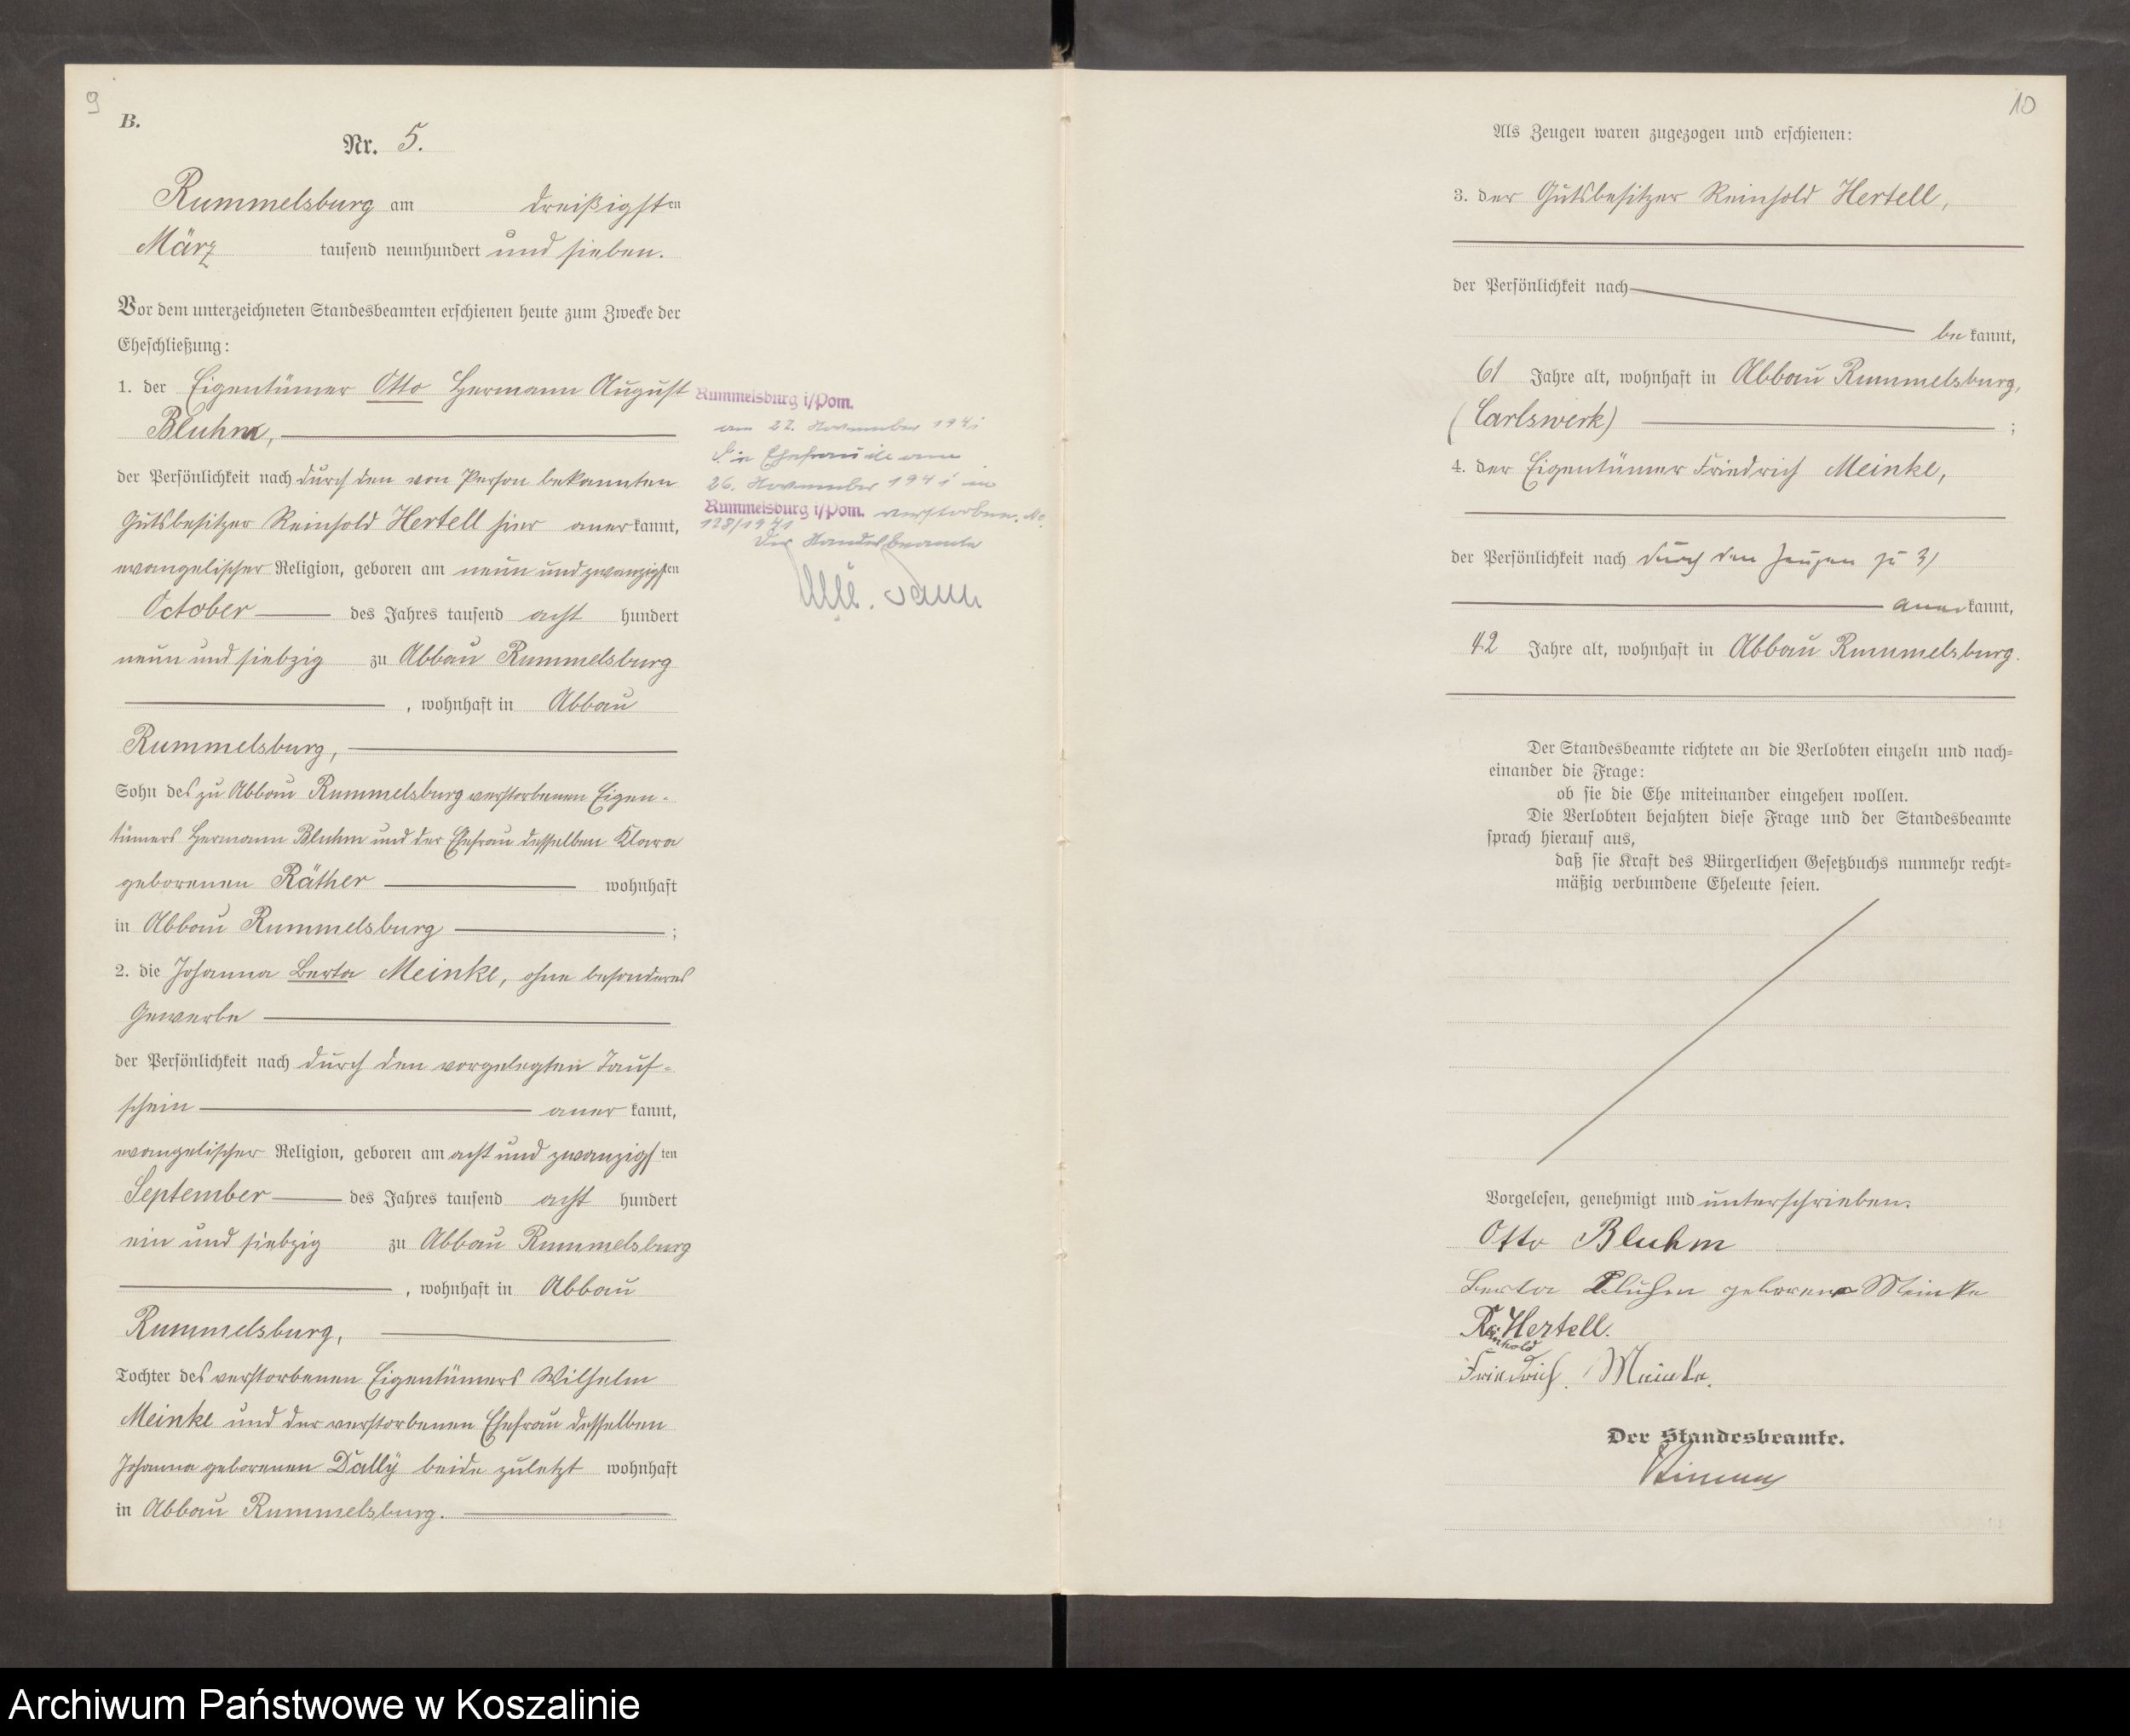 9
B.
Nr. 5.
Rummelsburg am dreißigsten
März tausend neunhundert und sieben.
Vor dem unterzeichneten Standesbeamten erschienen heute zum Zwecke der
Eheschließung:
1. der Eigentümer Otto Hermann August
Bluhm,
der Persönlichkeit nach durch den von Person bekannten
Gutsbesitzer Reinhold Hertell hier anerkannt,
evangelischer Religion, geboren am neun und zwanzigsten
October des Jahres tausend acht hundert
neun und siebzig zu Abbau Rummelsburg
, wohnhaft in Abbau
Rummelsburg,
Sohn des zu Abbau Rummelsburg verstorbenen Eigen-
tümers Hermann Bluhm und der Ehefrau desselben Klara
geborenen Räther wohnhaft
in Abbau Rummelsburg ;
2. die Johanna Berta Meinke, ohne besonderes
Gewerbe
der Persönlichkeit nach durch den vorgelegten Tauf-
schein anerkannt,
evangelischer Religion, geboren am acht und zwanzigsten
September des Jahres tausend acht hundert
ein und siebzig zu Abbau Rummelsburg
, wohnhaft in Abbau
Rummelsburg,
Tochter des verstorbenen Eigentümers Wilhelm
Meinke und der verstorbenen Ehefrau desselben
Johanna geborenen Dally beide zuletzt wohnhaft
in Abbau Rummelsburg.
Rummelsburg i/Pom.
am 27. November 1941
Die Ehefrau ist am
26. November 1941 in
Rummelsburg i/Pom. verstorben. No.
128/1941
Der Standesbeamte
10
Als Zeugen waren zugezogen und erschienen:
3. der Gutsbesitzer Reinhold Hertell,
der Persönlichkeit nach
bekannt,
61 Jahre alt, wohnhaft in Abbau Rummelsburg,
(Carlswerk) ;
4. der Eigentümer Friedrich Meinke,
der Persönlichkeit nach durch den Zeugen zu 3)
anerkannt,
42 Jahre alt, wohnhaft in Abbau Rummelsburg.
Der Standesbeamte richtete an die Verlobten einzeln und nach-
einander die Frage:
ob sie die Ehe miteinander eingehen wollen.
Die Verlobten bejahten diese Frage und der Standesbeamte
sprach hierauf aus,
daß sie kraft des Bürgerlichen Gesetzbuchs nunmehr recht-
mäßig verbundene Eheleute seien.
Vorgelesen, genehmigt und unterschrieben.
Otto Bluhm
Berta Bluhm geborene Meinke
Reinhold Hertell.
Friedrich Meinke.
Der Standesbeamte.
Archiwum Państwowe w Koszalinie